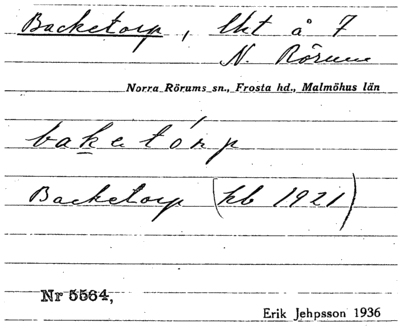 Backetorp, lht å 7
N. Rörum
Norra Rörums sn., Frosta hd., Malmöhus län
baketórp
Backetorp (kb 1921)
Nr 5564,
Erik Jehpsson 1936